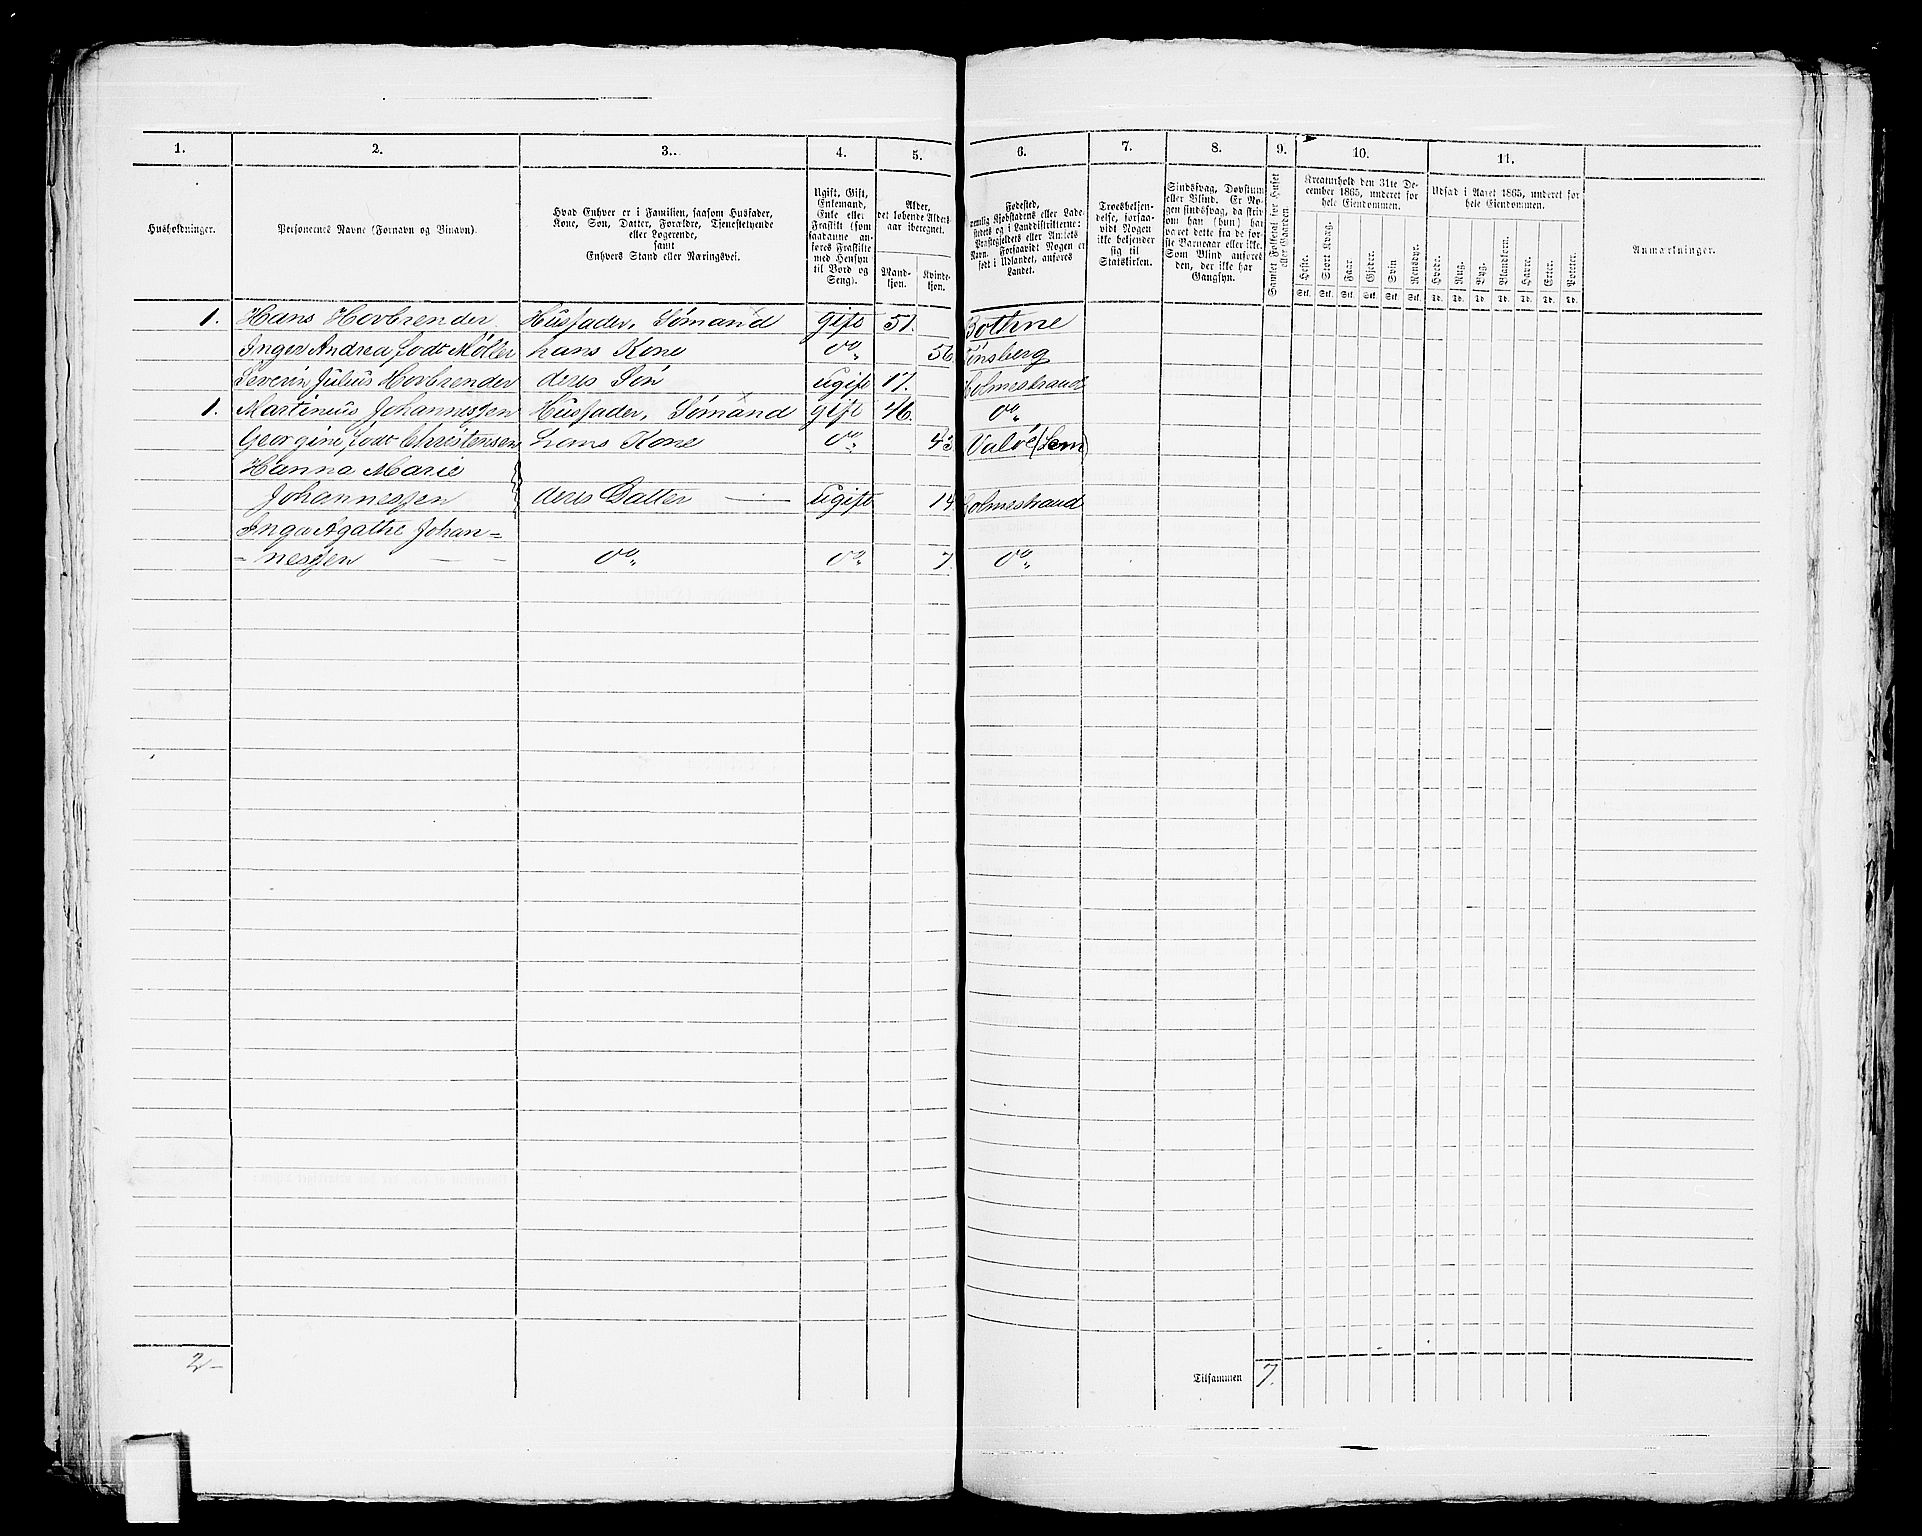 1. 2. 3. 4. 5. 6. 7. 8. 9. 10. 11.
Husholdninger.
Personernes Navne (Fornavn og Binavn).
Hvad Enhver er i Familien, saasom Husfader,
Kone, Søn, Datter, Forældre, Tjenestetyende
eller Logerende,
samt
Enhvers Stand eller Næringsvei.
Ugift, Gift,
Enkemand,
Enke eller
Fraskilt (som
saadanne an-
føres Fraskilte
med Hensyn
til Bord og
Seng).
Alder,
det løbende Alders-
aar iberegnet.
Mand-
kjøn.
Kvinde-
kjøn.
Fødested,
nemlig Kjøbstadens eller Lade-
stedets og i Landdistrikterne:
Præstegjeldets eller Amtets
Navn. Forsaavidt Nogen er
født i Udlandet, anføres
Landet.
Troesbekjen-
delse, forsaa-
vidt Nogen
ikke bekjender
sig til
Statskirken.
Sindssvag, Døvstum
eller Blind. Er No-
gen sindssvag, da skriv
om han (hun) har
været dette fra de før-
ste Barneaar eller ikke.
Som Blind anføres
den, der ikke har
Gangsyn.
Samlet Folketal for Huset
eller Gaarden
Kreaturhold den 31te De-
cember 1865, underet for
hele Eiendommen.
Heste. Stort Kvæg. Faar Gjeder. Svin Rensdyr.
Stk. Stk. Stk. Stk. Stk. Stk.
Udsæd i Aaret 1865, underet for
hele Eiendommen.
Hvede. Rug. Byg. Blandkorn. Havre. Erter. Poteter.
Td. Td. Td. Td. Td. Td. Td.
Anmærkninger.
1. Hans Hovbrender Husfader, Sømand gift 51. Bothne
Inger Andrea, født Møller hans Kone do 56. Tønsberg
Severin Julius Hovbrender deres Søn ugift 17. Holmestrand
1. Martinius Johannessen Husfader, Sømand gift 46. do
Georgine, født Christensen hans Kone do 43. Valøe (Sem)
Hanna Marie
Johannessen deres Datter — ugift 14. Holmestrand
Inga Agathe Johan-
- nessen — — do do 7. do
2 -
Tilsammen 7.